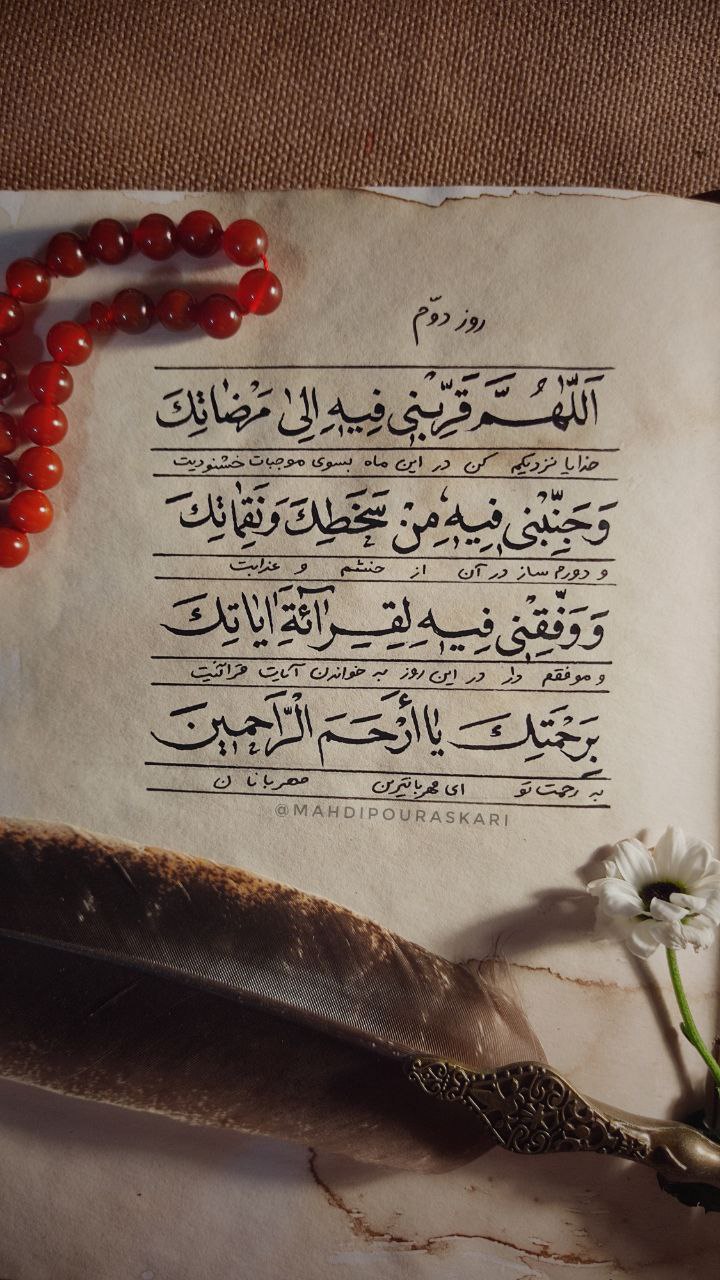 روز دوّم
اَللّٰهُمَّ قَرِّبْنٖی فِیهِ اِلیٰ مَرْضٰاتِكَ
خدایا نزدیکم کن در این ماه بسوی موجبات خشنودیت
وَ جَنِّبْنٖی فِیهِ مِنْ سَخَطِكَ وَ نَقِمٰاتِكَ
و دورم ساز در آن از خشم و عذابت
وَ وَفِّقِنْی فِیهِ لِقِرٰائَةِ اٰیٰاتِكَ
و موفقم دار در این روز به خواندن آیات قرآنیت
بِرَحْمَتِكَ یٰا أَرْحَمَ الْرَّاحِمینَ
به رحمت تو ای مهربانترین مهربانان
@MAHDIPOURASKARI